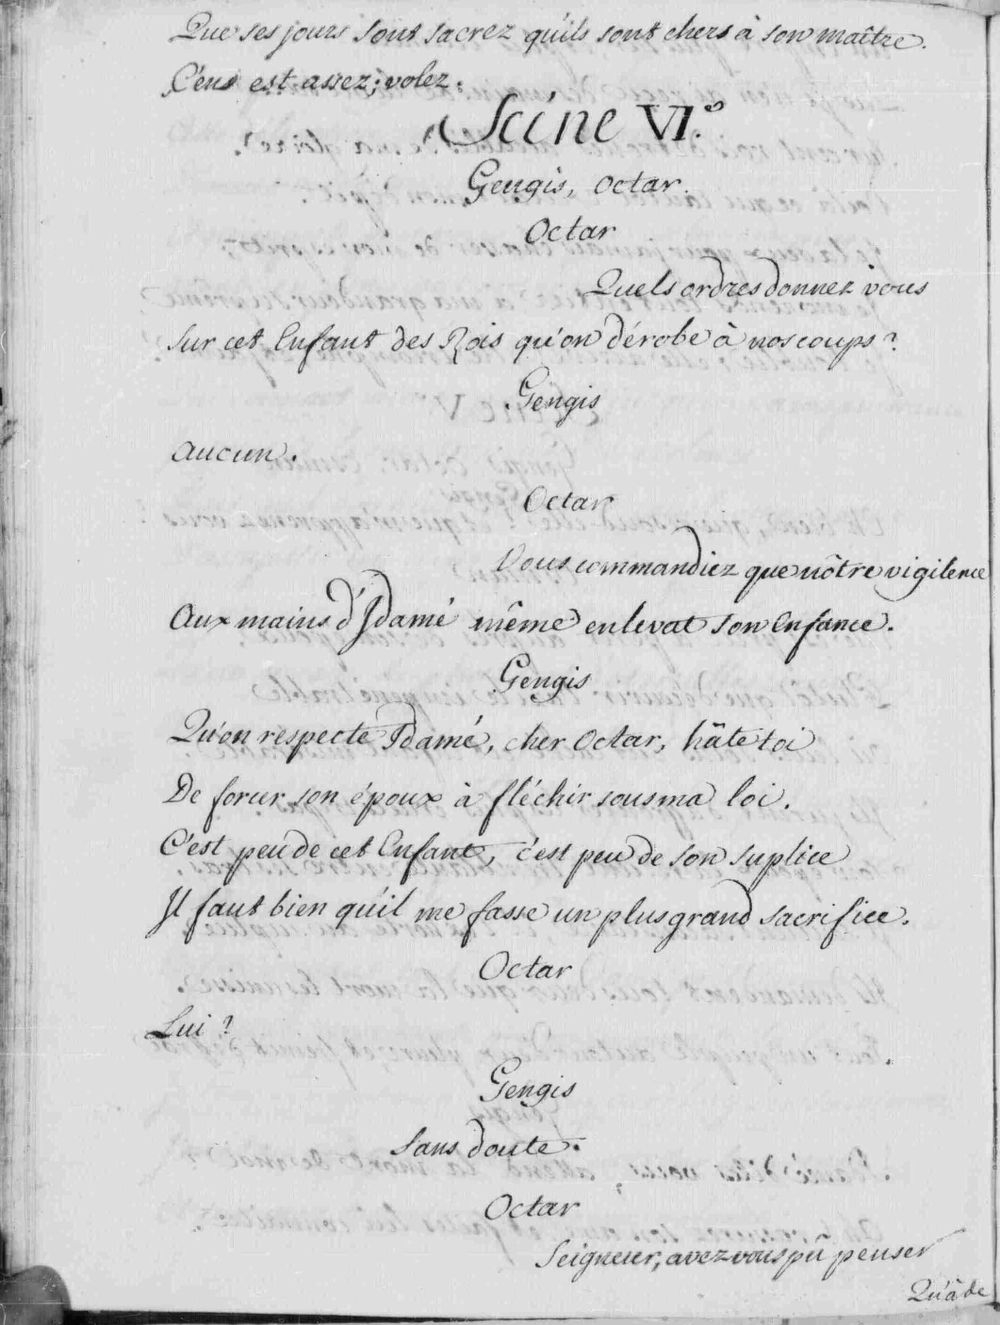 Que ses jours sont sacrez qu'ils sont chers à son maître.
C'en est assez; volez.
Scéne VI.e
Gengis, Octar.
Octar
Quels ordres donnez vous
sur cet Enfant des Rois qu'on dérobe à nos coups?
Gengis
aucun.
Octar
Vous commandiez que nôtre vigilence
aux mains d'Idamé même enlevat son enfance.
Gengis
Qu'on respecte Idamé, cher Octar, hâte toi
De forcer son époux à fléchir sous ma loi.
C'est peu de cet Enfant, c'est peu de son suplice
Il faut bien qu'il me fasse un plus grand sacrifice.
Octar
Lui?
Gengis
Sans doute.
Octar
Seigneur, avez vous pû penser
Qu'à de